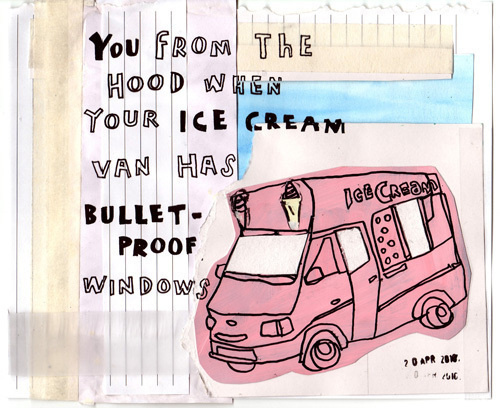 YOU FROM THE
HOOD WHEN
YOUR ICE CREAM
VAN HAS
BULLET-
PROOF
WINDOWS
ICE CREAM
20 APR 2016.